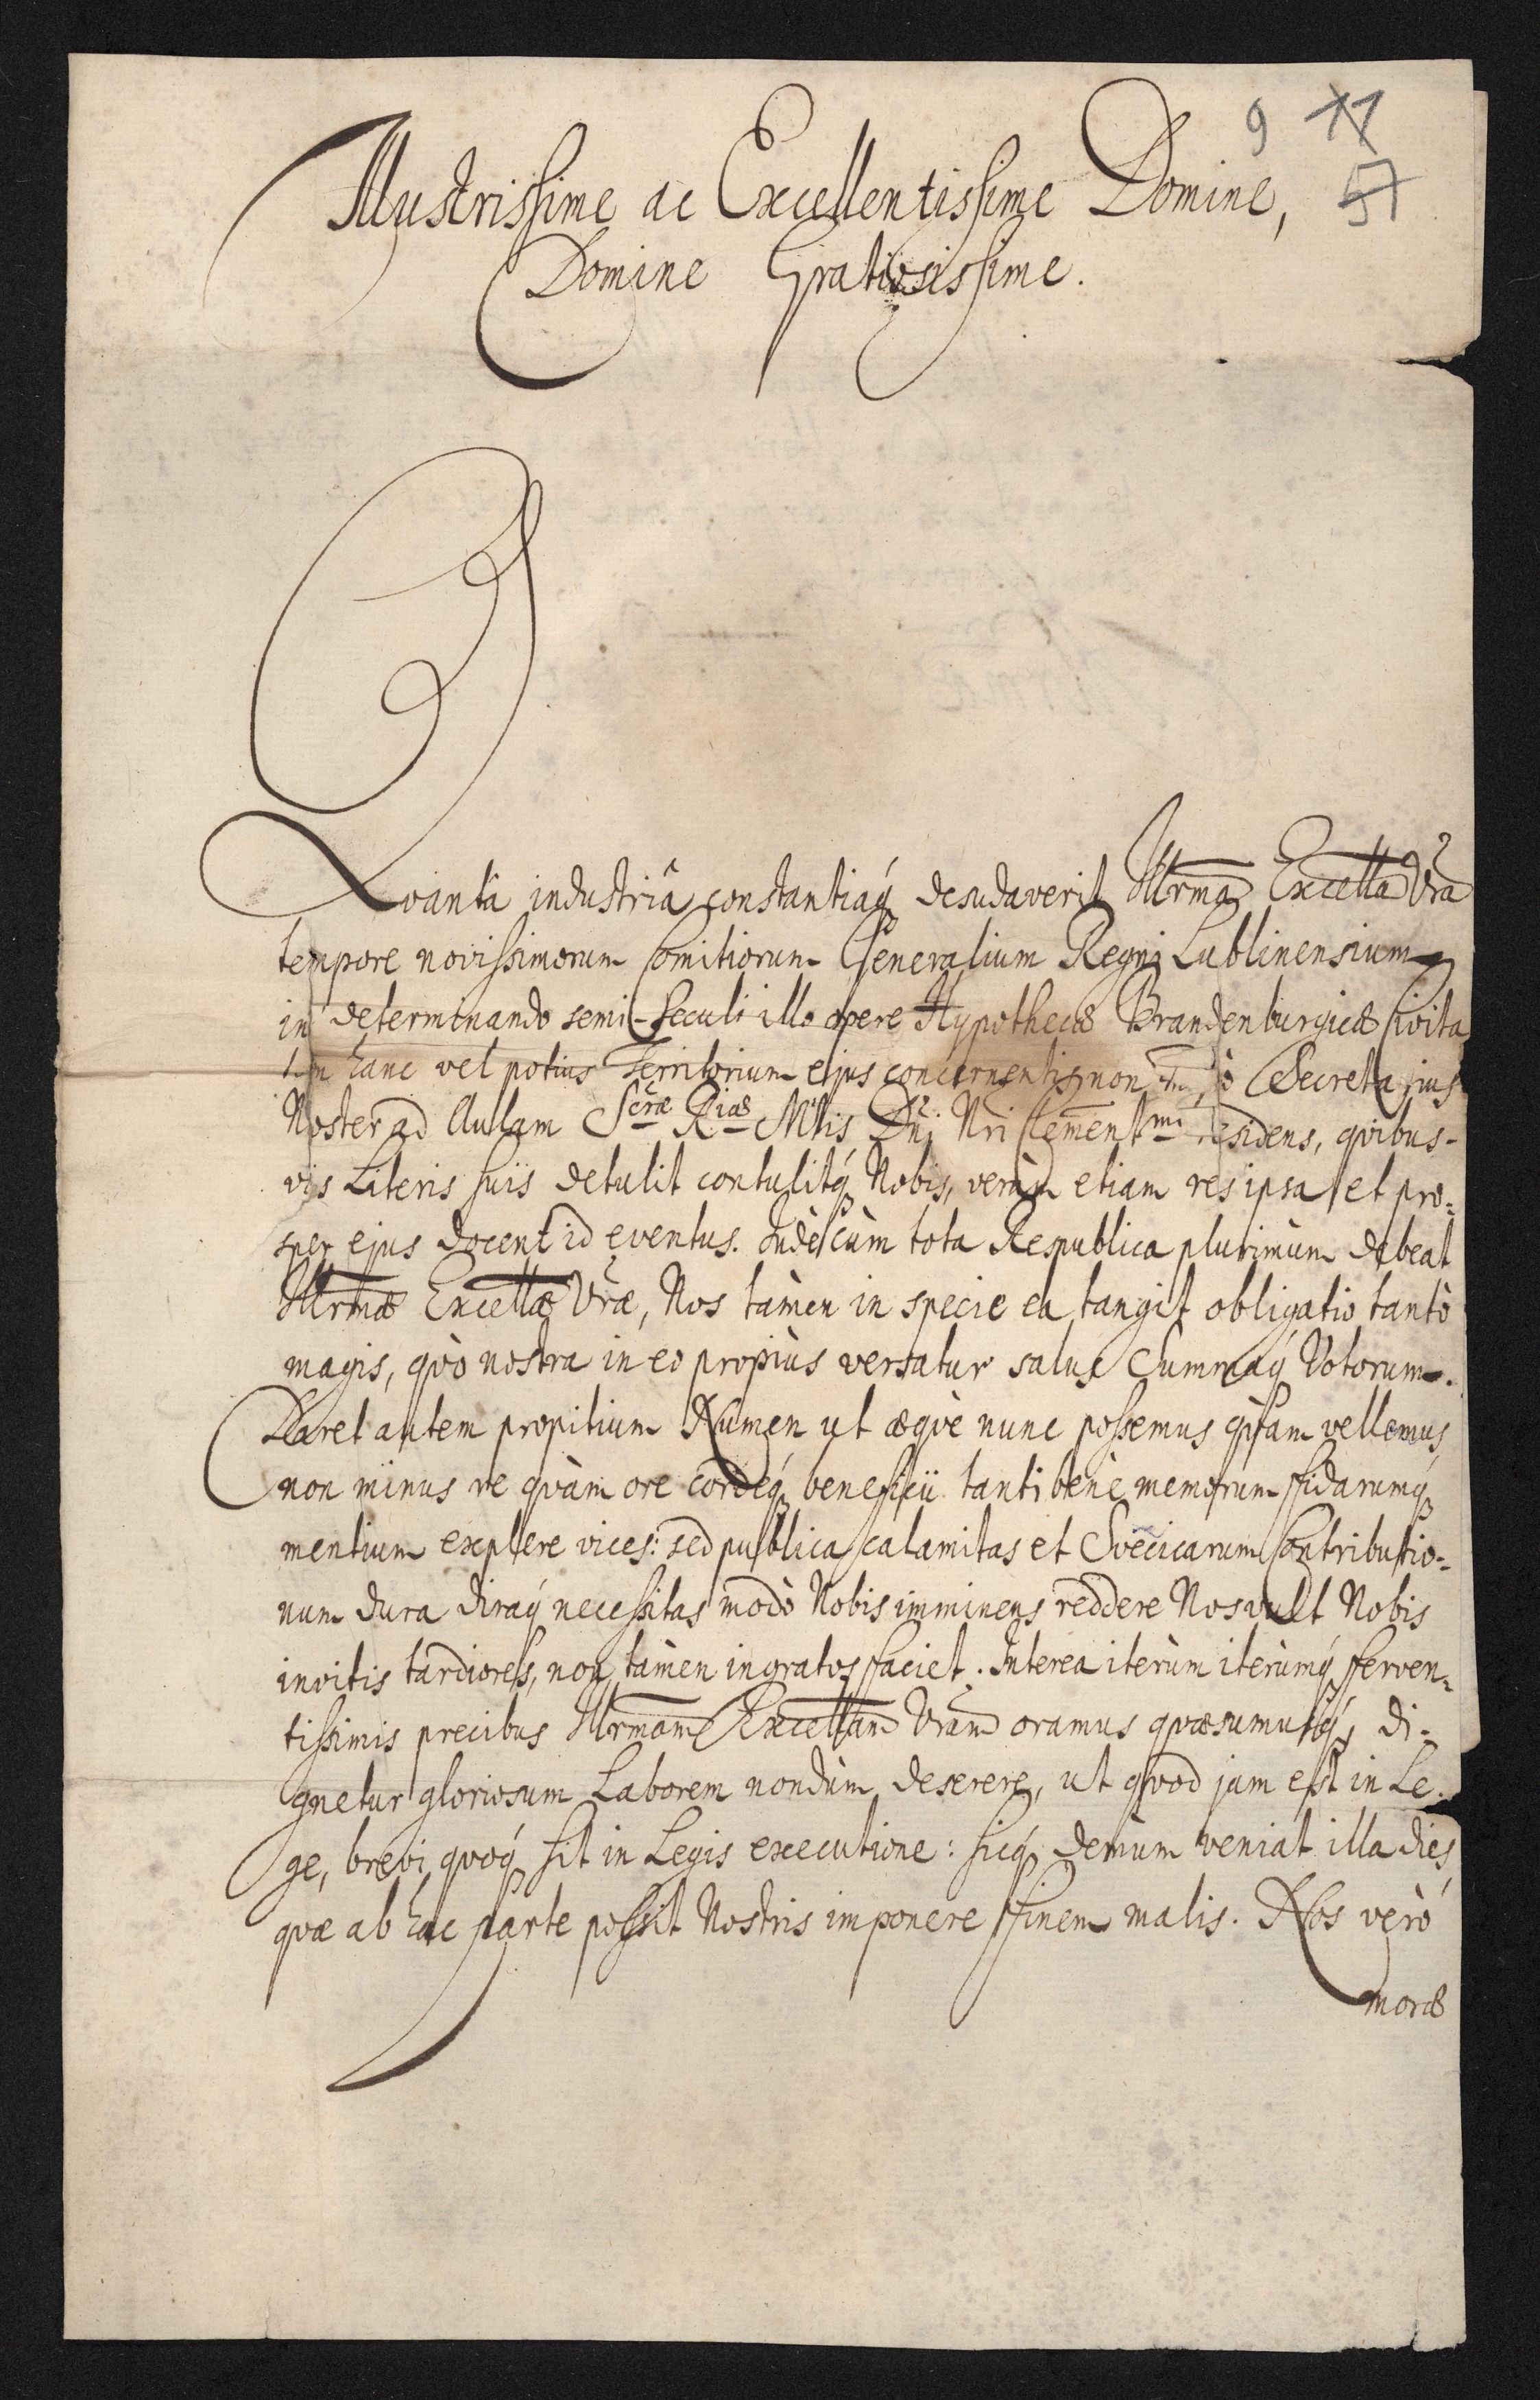 9 11
57
Illustrissime ac Excellentissime Domine,
Domine Gratiosissime.
Qvantâ industriâ constantiaq́ desudaverit Illrma Excella Vra
tempore novissimorum Comitiorum Generalium Regni Lublinensium
in determinando semi-seculi illo opere Hypothecæ Brandenburgicæ Civita
tem hanc vel potius Territorium ejus concernentis, non Secretarius
Noster ad Aulam Scræ Riæ Mttis Dni Nri Clementmi residens, qvibus-
vis Literis suis detulit contulitq́ Nobis, verùm etiam res ipsa et pro-
sper ejus docent id eventus. Indè cùm tota Respublica plurimùm debeat
Illrmæ Excellæ Vræ, Nos tamèn in specie ea tangit obligatio tantò
magis, qvò nostra in eo propiùs versatur salus Summaq́ Votorum.
Daret autem propitium Numen ut æqvè nunc possemus qvam vellemus
non minus re qvàm ore cordeq́ beneficii tanti benè memorum fidarumq́
mentium explere vices: sed publica calamitas et Svecicarum Contributio-
num dura diraq́ necessitas modò Nobis imminens reddere Nos vult Nobis
invitis tardiores, non tamèn ingratos faciet. Interea iterùm iterùmq́ ferven-
tissimis precibus Illrmam Excellam Vram oramus qvæsumusq́, di-
gnetur gloriosum Laborem nondùm deserere, ut qvod jam est in Le-
ge, brevi qvoq́ sit in Legis executione: sicq́ demùm veniat illa dies,
qvæ ab hac parte possit Nostris imponere finem malis. Nos verò
moræ